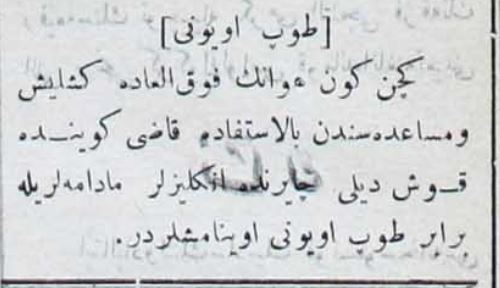 [طوپ اویونی]
كچن كون هوانك فوق‌العاده كشایش
ومساعده‌سندن بالاستفاده قاضی كویـنـده
قـوش دیلی چایرنده انكلیزلر مادامه‌لریله
برابر طوپ اویونی اوینامشلردر.